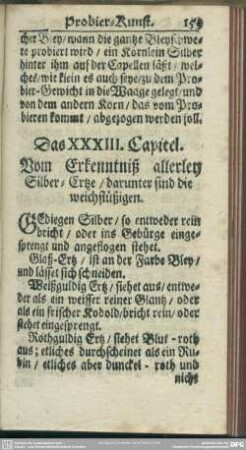 Probier-Kunst. 159
cher Bley/wann die gantze Bleyschwe-
re probiert wird / ein Körnlein Silber
hinter ihm auf der Capellen läßt / wel-
ches/wie klein es auch seye/zu dem Pro-
bier-Gewicht in die Waage gelegt/und
von dem andern Korn/das vom Pro-
bieren kommt / abgezogen werden soll.
Das XXXIII. Capitel.
Vom Erkenntniß allerley
Silber- Ertze / darunter sind die
weichflüßigen.
GEdiegen Silber/ so entweder rein
bricht / oder ins Gebürge einge-
sprengt und angeflogen stehet.
Glaß-Ertz / ist an der Farbe Bley/
und lässet sich schneiden.
Weißguldig Ertz / siehet aus/entwe-
der als ein weisser reiner Glantz / oder
als ein frischer Kobold/bricht rein/oder
stehet eingesprengt.
Rothguldig Ertz / siehet Blut - roth
aus; etliches durchscheinet als ein Ru-
bin / etliches aber dunckel - roth und
nicht